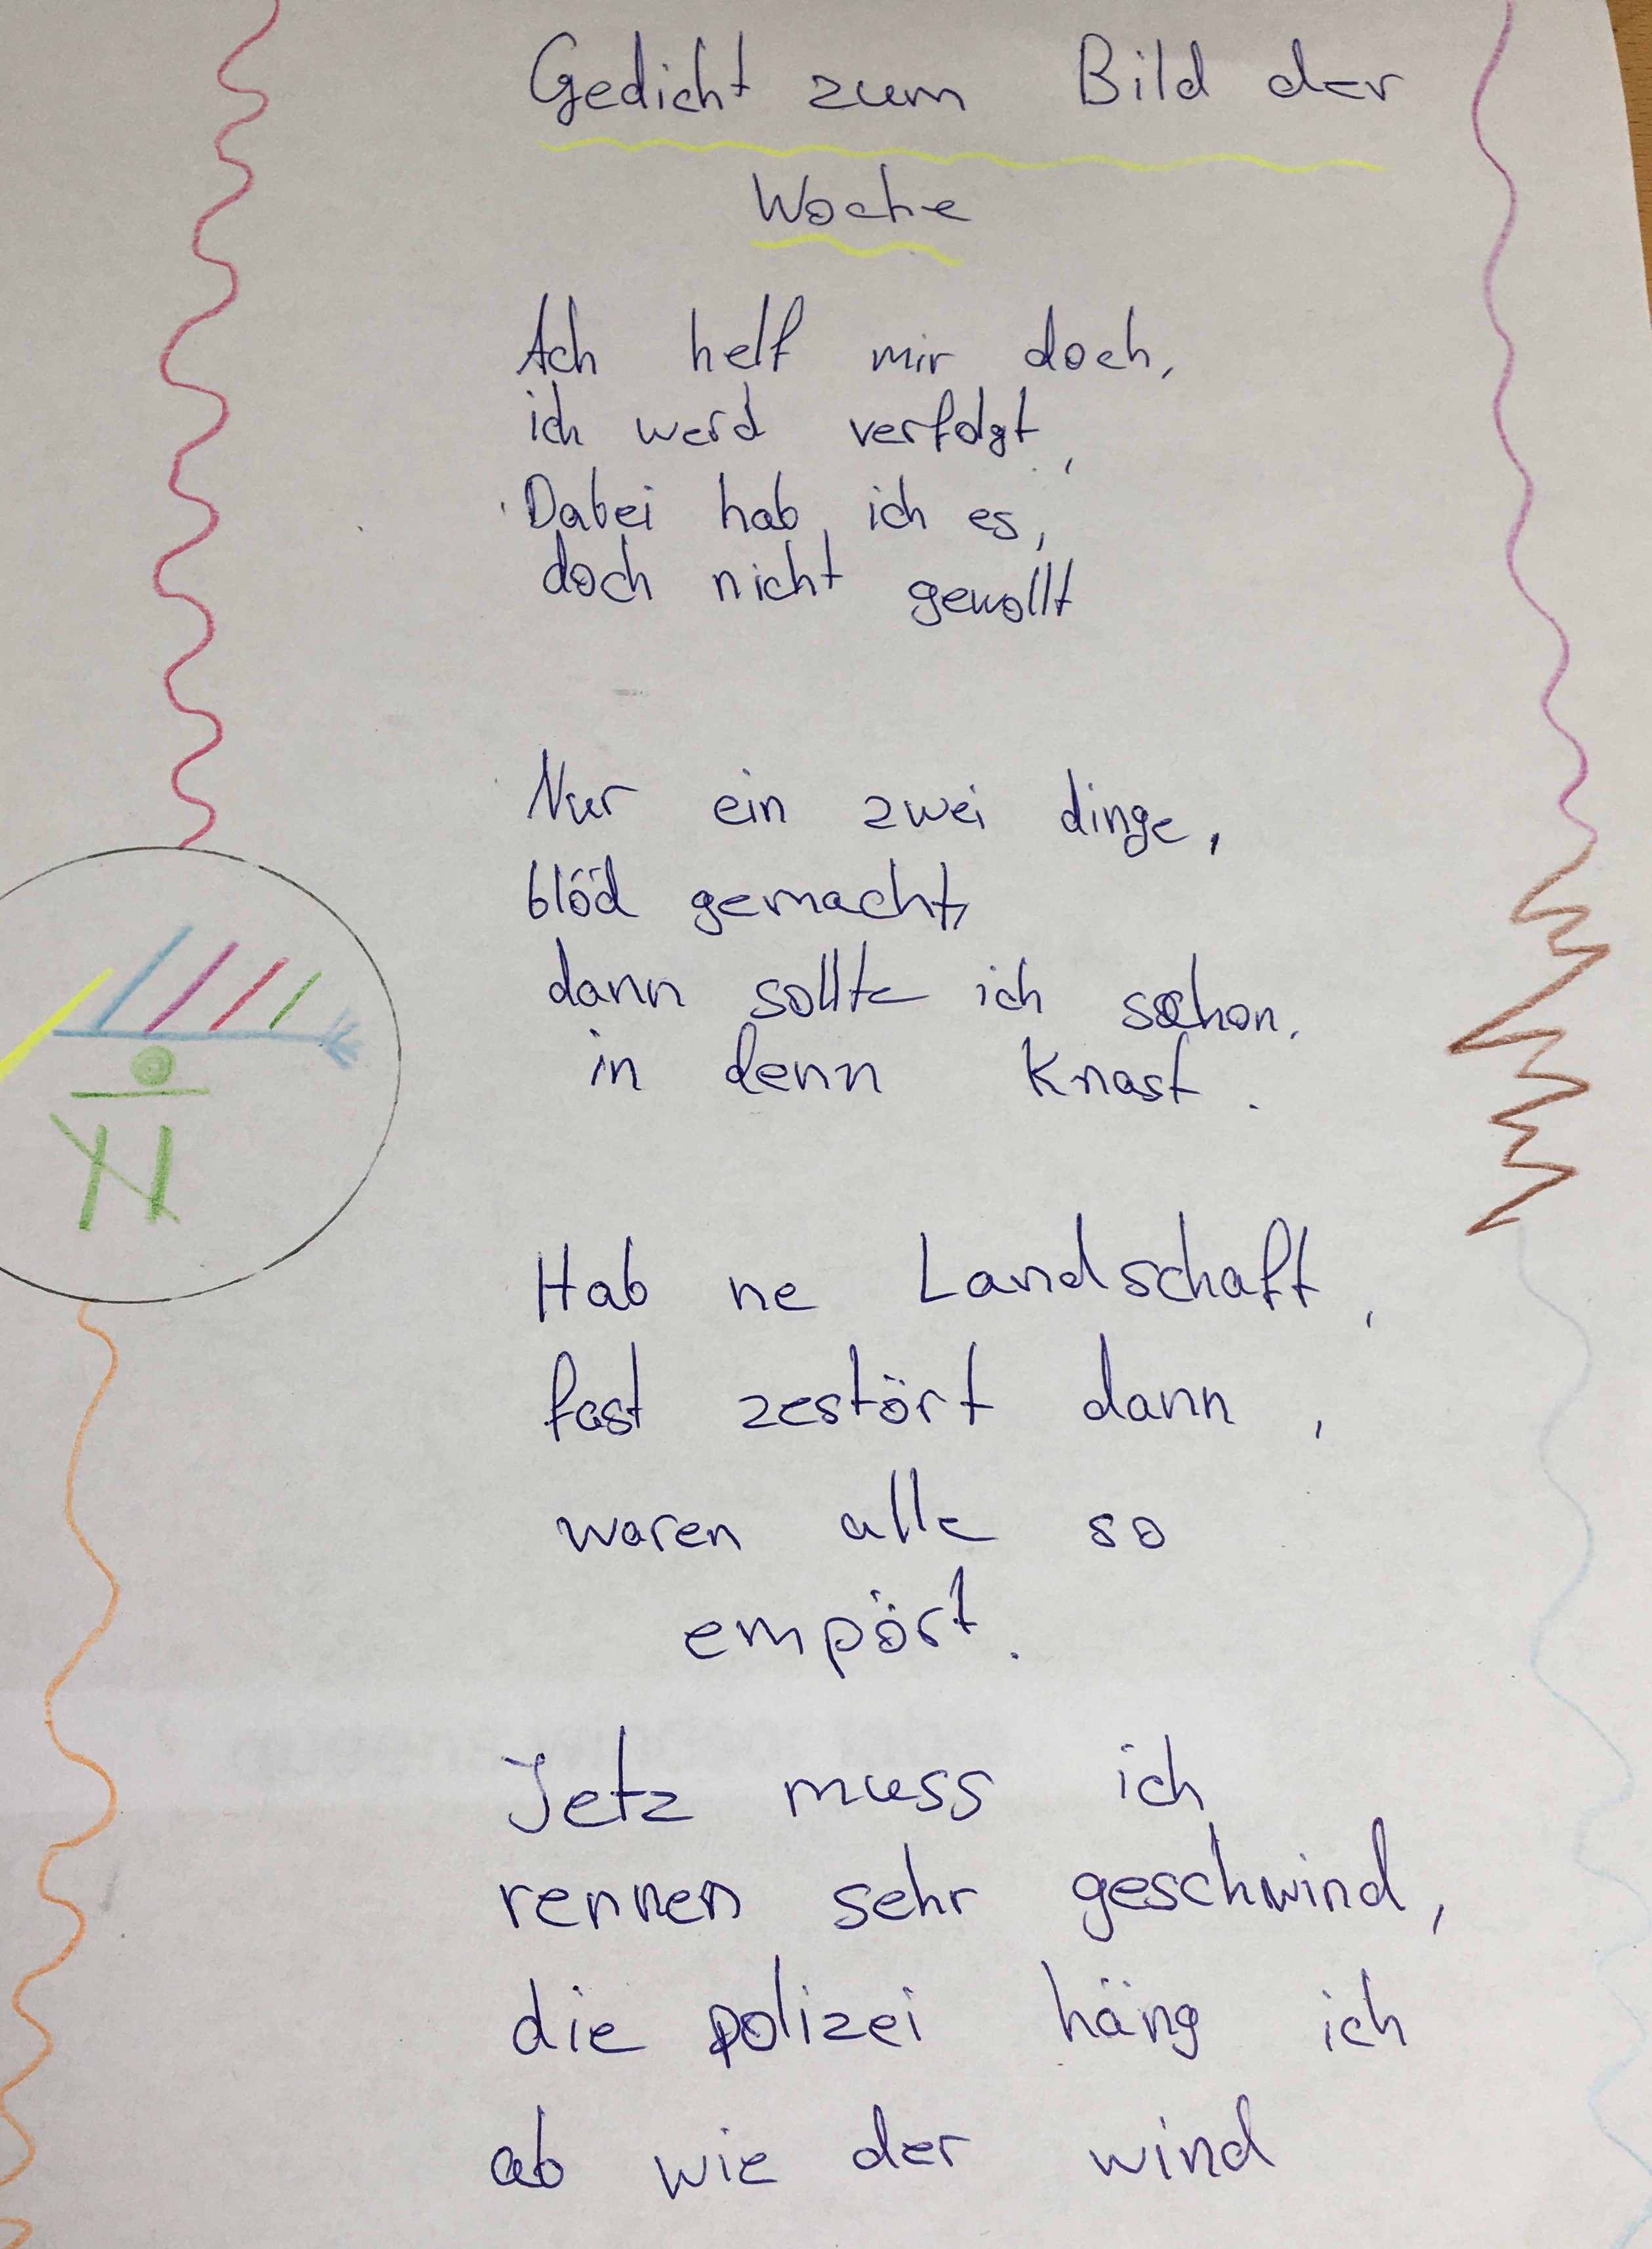 Gedicht zum Bild der
Woche
Ach helf mir doch,
ich werd verfolgt,
Dabei hab ich es,
doch nicht gewollt
Nur ein zwei dinge,
blöd gemacht,
dann sollte ich schon.
in denn Knast.
Hab ne Landschaft,
fast zestört dann,
waren alle so
empört.
Jetz muss ich
rennen sehr geschwind,
die polizei häng ich
ab wie der wind